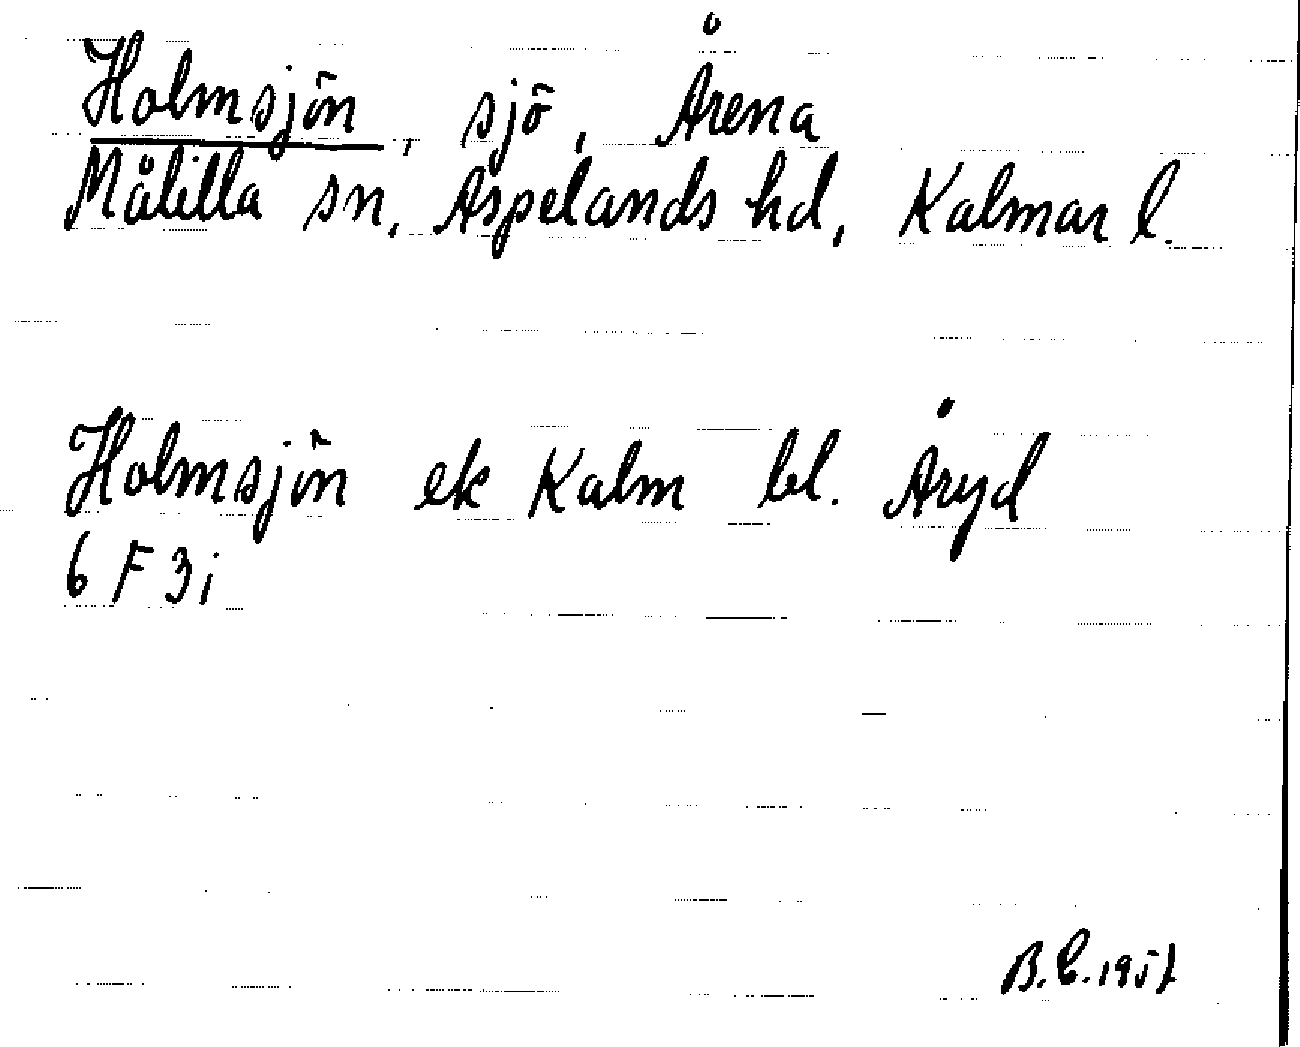 Holmsjön, sjö, Årena
Målilla sn, Aspelands hd, Kalmar l.
Holmsjön ek Kalm bl. Åryd
6 F 3i
B.E. 1957